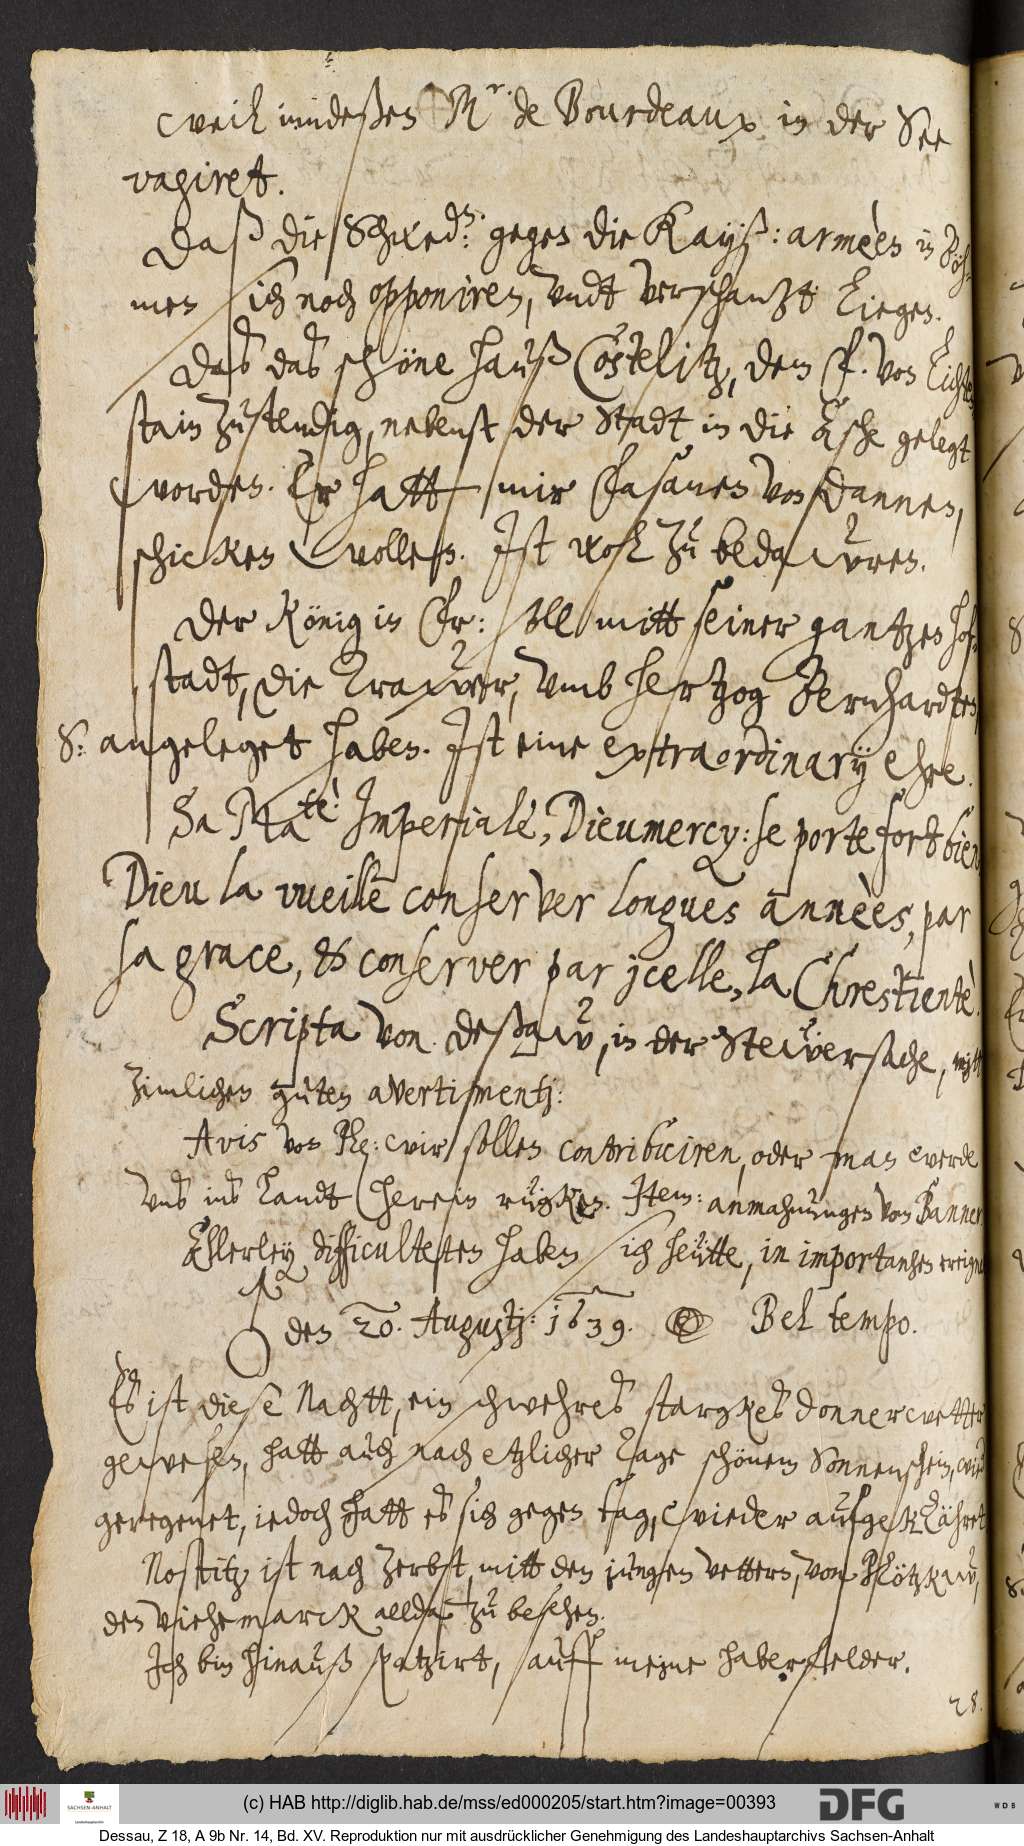 weil inndeßen Mr. de Bourdeaux in der See
vagiret.
Daß die Schwed.en: gegen die Kayß: armèèn in Böh-
men sich noch opponiren, vndt verschantzt liegen.
Das das schöne hauß Costelitz, dem F. von Lichten
stain zustendig, nebenst der Stadt in die Asche gelegt
worden. Er hatt mir Fasanen von dannen,
schicken wollen. Ist wol zu bedawren.
Der König in Fr: soll mitt seiner gantzen hof-
stadt, die trawer, vmb hertzog Bernhardten
S: angeleget haben. Ist eine extraordinarÿ ehre.
Sa Matè: Imperiale, Dieumercy: se porte fort bien
Dieu la vueille conserver longues annèès, par
sa grace, & conserver par jcelle, la Chrestientè.
Scripta von Deßaw, in der Stewersache, mitt
zimlichen guten avertimentj:
Avis von Pl: wir sollen contribuiren, oder man werde
vns ins Landt herein rügken. Item: anmahnungen von Banner.
Allerley difficulteten haben sich heütte, in importantzen ereignet
den 20. Augustj: 1639. Bel tempo.
Es ist diese Nachtt, ein schwehres starckes donnerwetter
gewesen, hatt auch nach etzlicher tage schönem Sonnenschein, wied
geregenet, iedoch hatt es sich gegen tag, wieder aufgeklähret
Nostitz ist nach Zerbst, mitt den jungen vettern, von Plötzkaw,
den viehemarck allda zu besehen.
Ich bin hinauß spatzirt, auff meine haberfelder.
28.
SACHSEN-ANHALT
Landeshauptarchiv
(c) HAB http://diglib.hab.de/mss/ed000205/start.htm?image=00393
DFG
WDB
Dessau, Z 18, A 9b Nr. 14, Bd. XV. Reproduktion nur mit ausdrücklicher Genehmigung des Landeshauptarchivs Sachsen-Anhalt